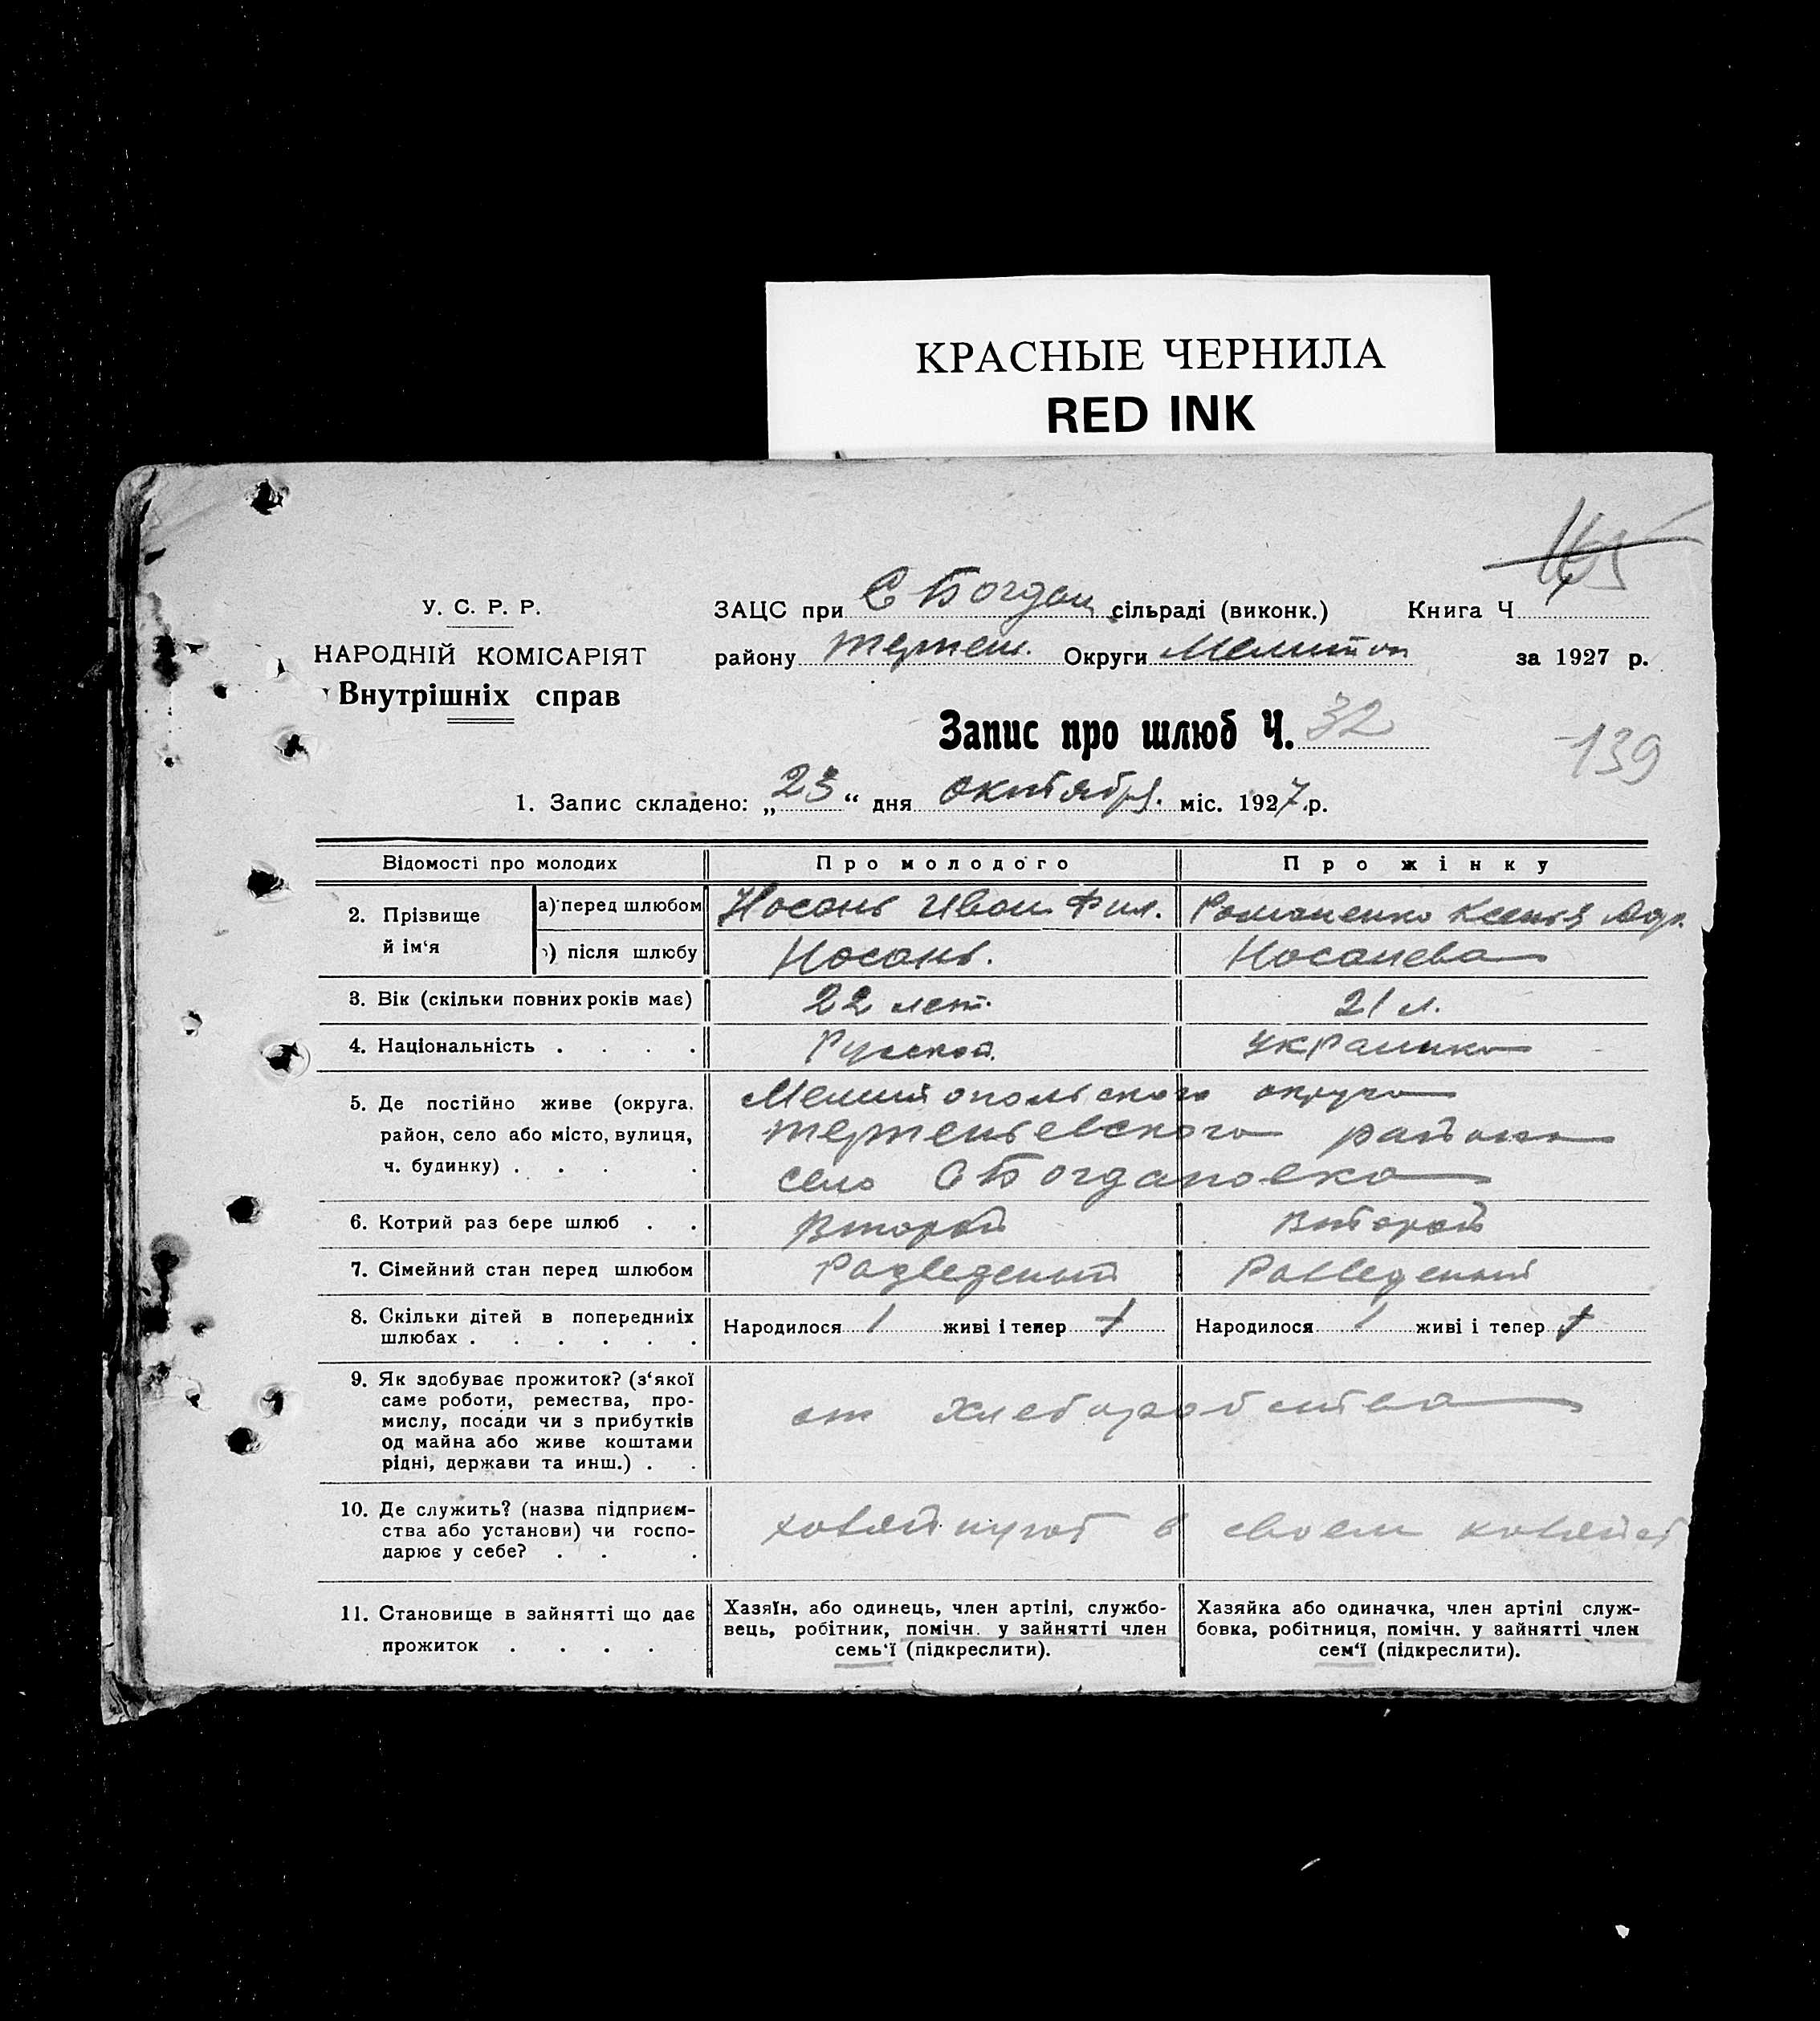 КРАСНЫЕ ЧЕРНИЛА
RED INK
165
У. С. Р. Р.
НАРОДНІЙ КОМІСАРІЯТ
Внутрішніх справ
ЗАЦС при С Богдан сільраді (виконк.) Книга Ч
району Терпен. Округи Мелитоп за 1927 р.
Запис про шлюб Ч. 32
139
1. Запис складено: „23“ дня октября. міс. 1927.р.
Відомості про молодих Про молодого Про жінку
2. Прізвище й ім‘я а) перед шлюбом Носань Иван Фил. Романенко Ксенья Адр.
) після шлюбу Носань. Носанева
3. Вік (скільки повних років має) 22 лет. 21 л.
4. Національність . . . . Руский. Украинка
5. Де постійно живе (округа, Мелитопольского округа
район, село або місто, вулиця, терпеньевского района
ч. будинку) . . . . село С Богдановка
6. Котрий раз бере шлюб . . Второй Второй
7. Сімейний стан перед шлюбом Разведеный Разведеный
8. Скільки дітей в попередниіх
шлюбах . . . . . . Народилося 1 живі і тепер † Народилося 1 живі і тепер †
9. Як здобуває прожиток? (з‘якої
саме роботи, ремества, про-
мислу, посади чи з прибутків
од майна або живе коштами
рідні, держави та инш.) . .
от хлеборобства
10. Де служить? (назва підприєм-
ства або установи) чи госпо-
дарює у себе? . . .
хозяйнуют в своем хозяйст
11. Становище в зайнятті що дає
прожиток . . . .
Хазяїн, або одинець, член артілі, службо-
вець, робітник, помічн. у зайнятті член
семь‘ї (підкреслити).
Хазяйка або одиначка, член артілі служ-
бовка, робітниця, помічн. у зайнятті член
сем‘ї (підкреслити).